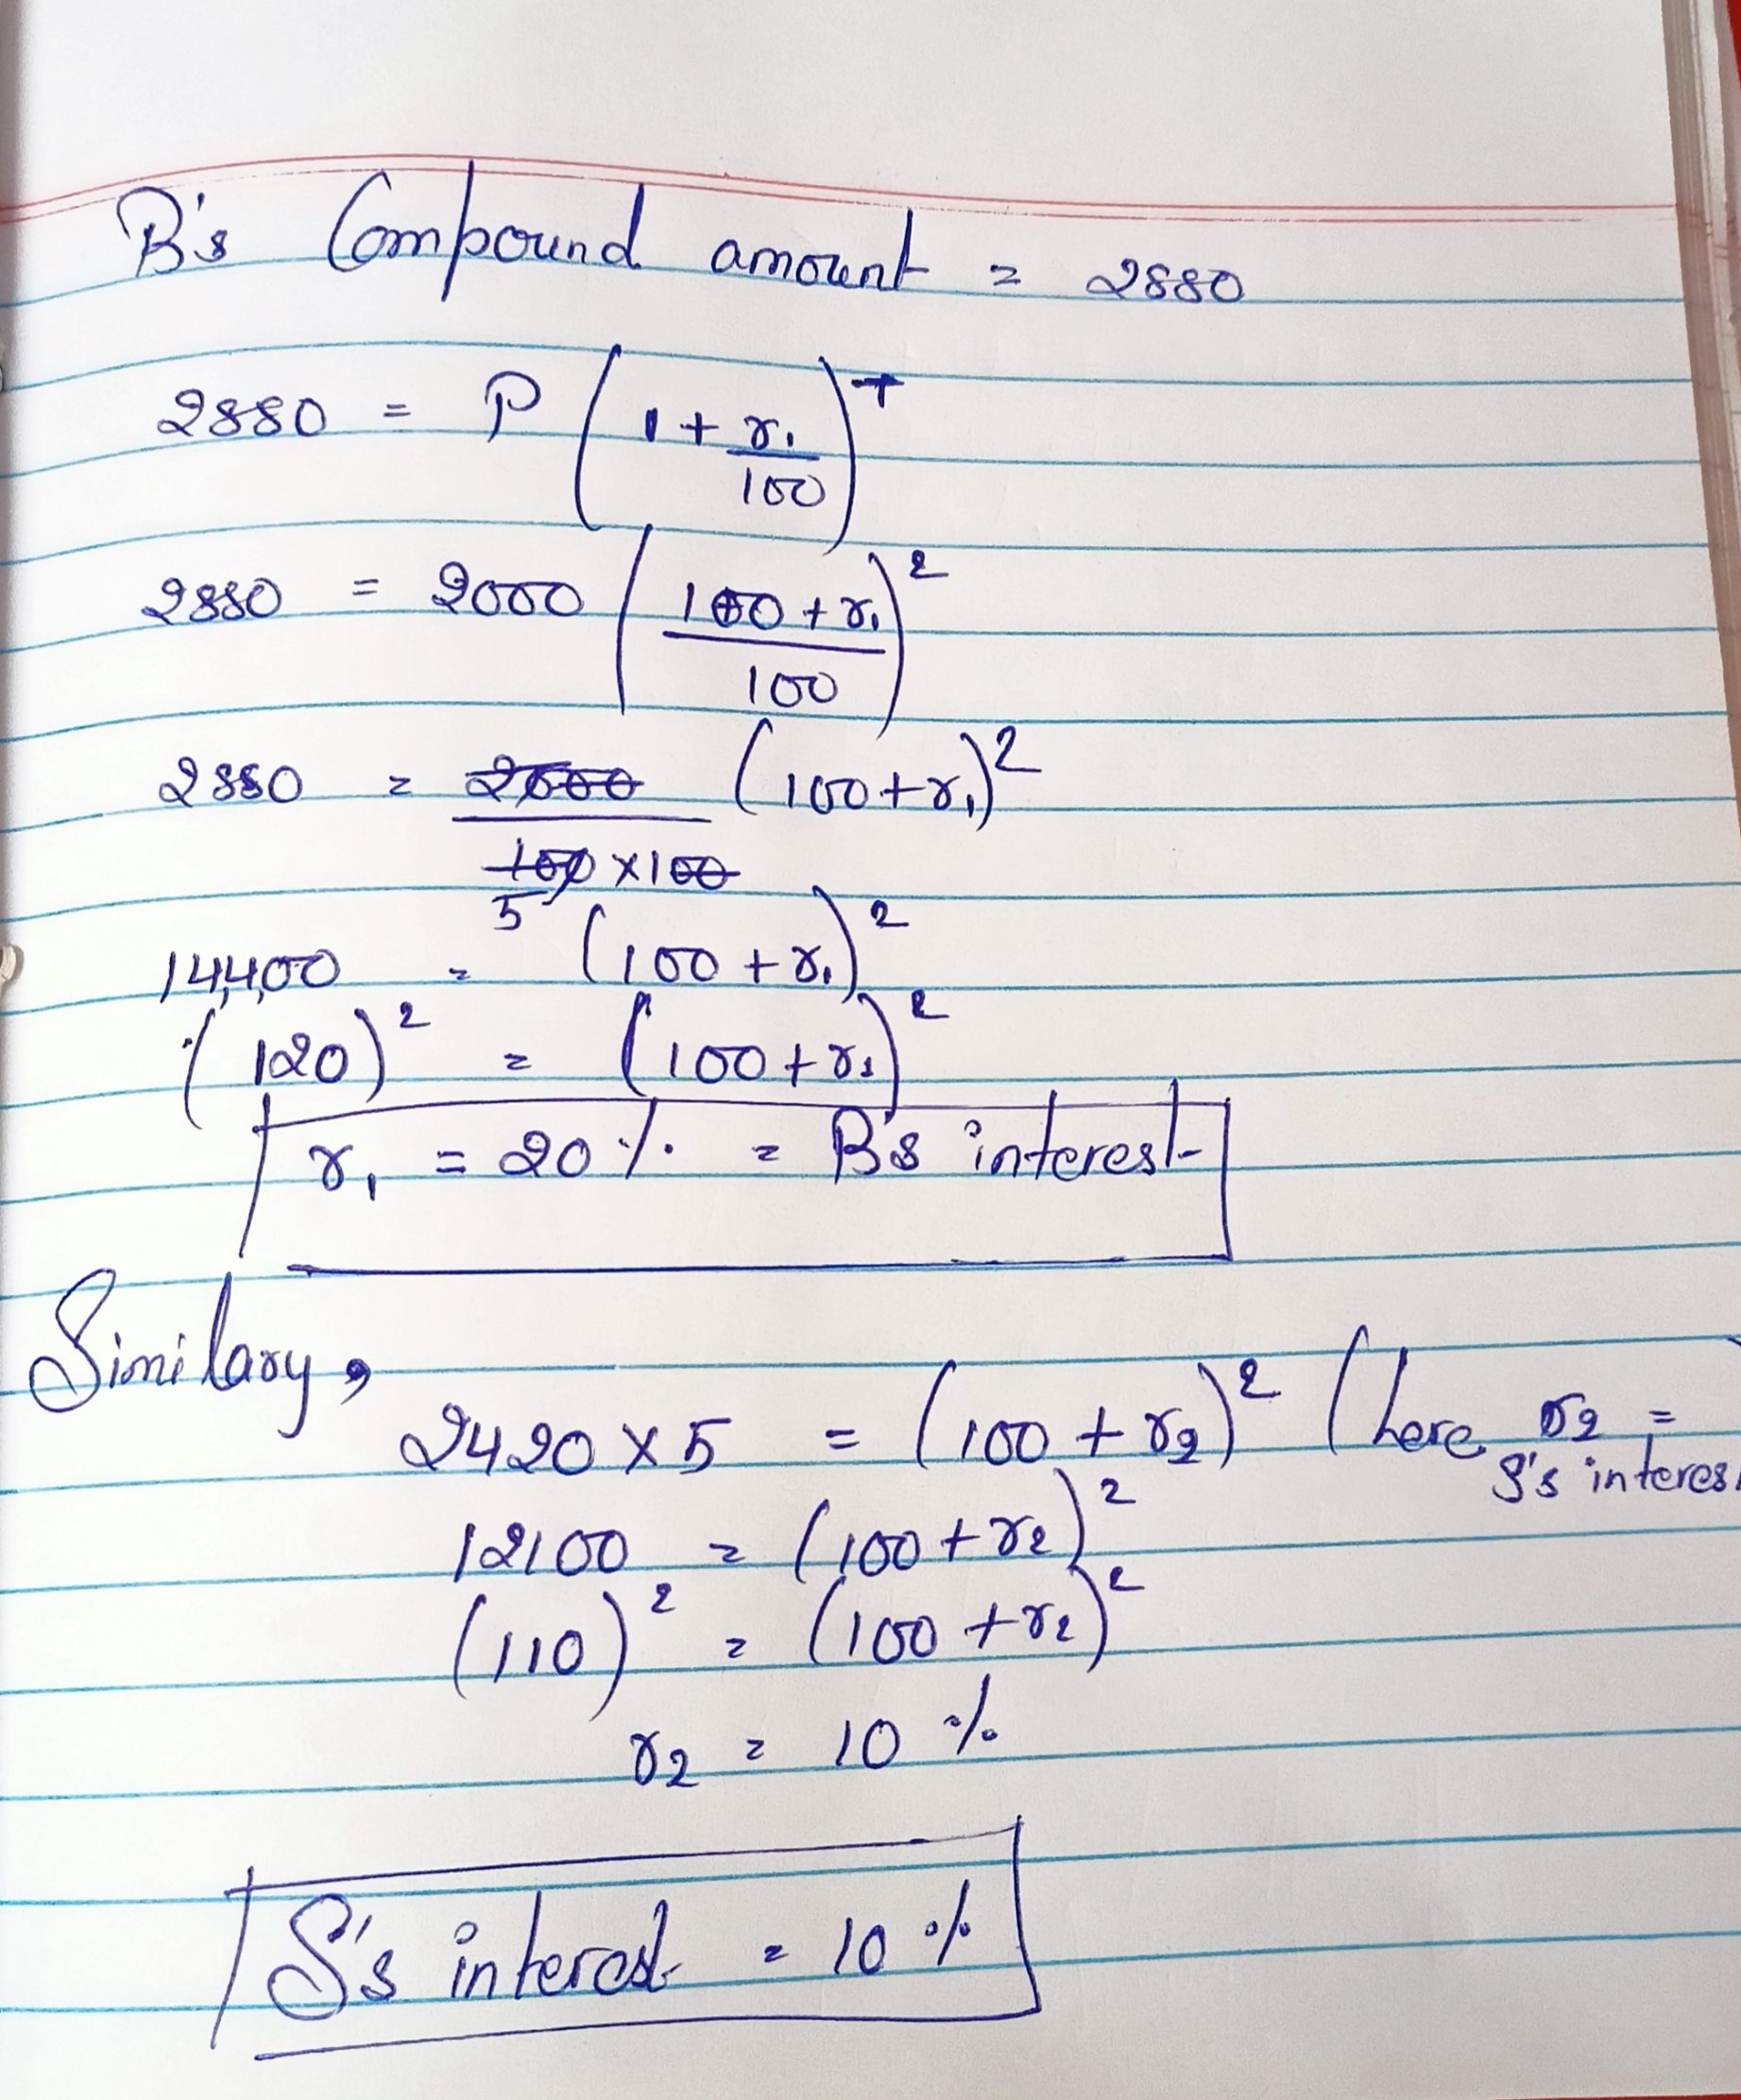 B's Compound amount = 2880
2880 = P (1 + r₁/100)^T
2880 = 2000 (100 + r₁/100)²
2880 = 2000/100 × 100 (100 + r₁)²
5
14400 = (100 + r₁)²
(120)² = (100 + r₁)²
r₁ = 20 % = B's interest
Similary,
2420 × 5 = (100 + r₂)² (here r₂ =
S's interes
12100 = (100 + r₂)²
(110)² = (100 + r₂)²
r₂ = 10 %
S's interest = 10 %